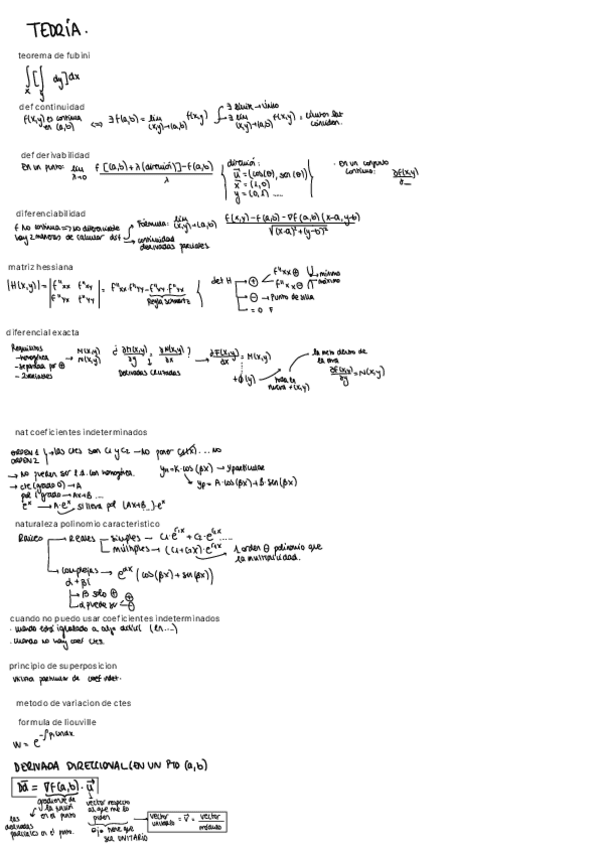 TEORÍA.
teorema de fubini
∫x [∫y dy] dx
def continuidad
f(x,y) es continua en (a,b) <=> ∃ f(a,b) = lim (x,y)→(a,b) f(x,y)
def derivabilidad
En un punto: lim λ→0 f[(a,b)+λ(dirección)]-f(a,b) / λ
dirección:
ū = (cos(θ), sen(θ))
x̄ = (1,0)
y = (0,1) ....
En un conjunto continuo:
diferenciabilidad
f no continua => no diferenciable
Fórmula: lim (x,y)→(a,b) f(x,y)-f(a,b)-∇f(a,b)(x-a,y-b) / √(x-a)²+(y-b)²
hay 2 maneras de calcular dif
continuidad
derivadas parciales
matriz hessiana
|H(x,y)| = |f''xx f''xy f''yx f''yy| = f''xx·f''yy-f''xy·f''yx
Regla schwartz
det H
→ ⊕ f''xx ⊕ ∪ mínimo
f''xx ⊖ ∩ máximo
→ ⊖ → Punto de silla
→ = 0
diferencial exacta
Requisitos
-homogénea
→ M(x,y) N(x,y)
¿ ∂M(x,y)/∂y = ∂N(x,y)/∂x ?
Derivadas cruzadas
→ ∂F(x,y)/∂x = M(x,y)
+∅(y)
∂F(x,y)/∂y = N(x,y)
nat coeficientes indeterminados
ORDEN 1
ORDEN 2
las ctes son C1 y C2
→ No pueden ser l.d. con homogénea.
→ cte (grado 0) → A
pol 1º grado → Ax+B ...
eˣ → A·eˣ si lleva pol (Ax+B..)·eˣ
yn = K·cos(βx) → y particular
yp = A·cos(βx)+B·sen(βx)
naturaleza polinomio caracteristico
Raíces → Reales → simples → C1·e^r1x + C2·e^r2x .....
→ múltiples → (C1+C2x)·e^r1x
1 orden ⊖ polinomio que la multiplicidad.
→ complejas → e^αx (cos(βx)+sen(βx))
α+βi
→ β solo ⊕
→ α puede ser ⊕ ⊖
cuando no puedo usar coeficientes indeterminados
· cuando está igualado a algo (ln....)
· cuando no hay coef ctes
principio de superposicion
particular de coef indet.
metodo de variacion de ctes
formula de liouville
w = e^-∫
DERIVADA DIRECCIONAL (EN UN PTO (a,b)
Dū = ∇f(a,b) · ū
gradiente de la función en el punto
vector respecto al que me lo piden
las derivadas parciales en el punto.
Ojo tiene que ser UNITARIO
vector unitario = v̄ = vector / módulo